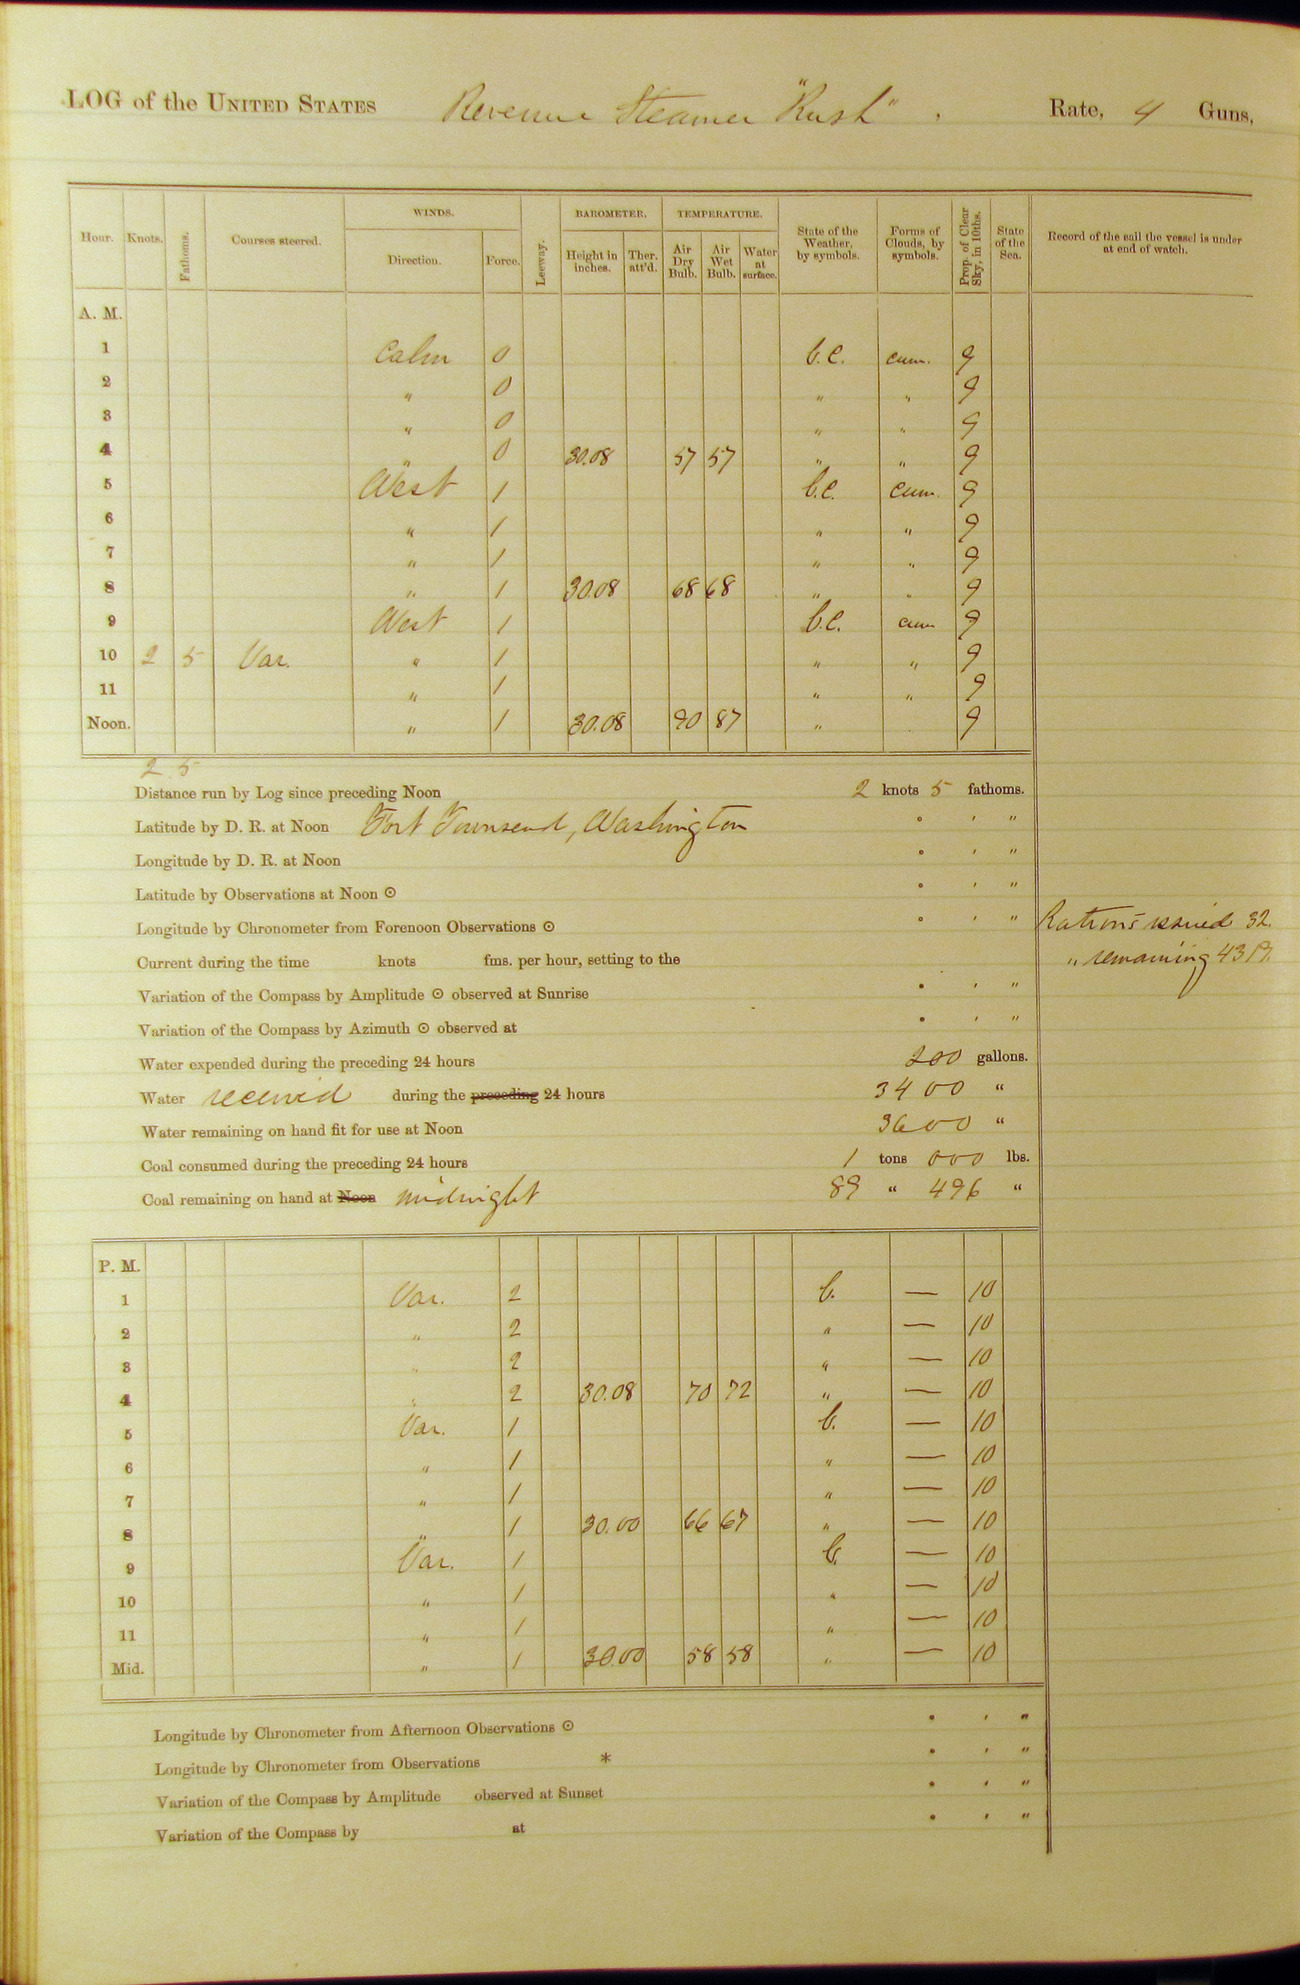 LOG of the UNITED STATES Revenue Steamer "Rush". Rate, 4 Guns,
Hour. Knots. Fathoms. Courses steered. WINDS. Direction. Force. Leeway. BAROMETER. Height in inches. Ther. att'd. TEMPERATURE. Air Dry Bulb. Air Wet Bulb. Water at surface. State of the Weather, by symbols. Forms of Clouds, by symbols. Prop. of Clear Sky, in 10ths. State of the Sea. Record of the sail the vessel is under at end of watch.
A. M.
1 Calm 0 b.c. cum. 9
2 " 0 " " 9
3 " 0 " " 9
4 " 0 30.08 57 57 " " 9
5 West 1 b.c. cum. 9
6 " 1 " " 9
7 " 1 " " 9
8 " 1 30.08 68 68 " " 9
9 West 1 b.c. cum 9
10 2 5 Var. " 1 " " 9
11 " 1 " " 9
Noon. " 1 30.08 90 87 " 9
2 5
Distance run by Log since preceding Noon 2 knots 5 fathoms.
Latitude by D. R. at Noon Port Townsend, Washington ° ' "
Longitude by D. R. at Noon ° ' "
Latitude by Observations at Noon ☉ ° ' "
Longitude by Chronometer from Forenoon Observations ☉ ° ' " Rations issued 32.
Current during the time knots fms. per hour, setting to the " remaining
Variation of the Compass by Amplitude ☉ observed at Sunrise ° ' "
Variation of the Compass by Azimuth ☉ observed at ° ' "
Water expended during the preceding 24 hours 200 gallons.
Water received during the preceding 24 hours 3400 "
Water remaining on hand fit for use at Noon 3600 "
Coal consumed during the preceding 24 hours 1 tons 000 lbs.
Coal remaining on hand at Noon midnight 89 " 496 "
P. M.
1 Var. 2 b. — 10
2 " 2 " — 10
3 " 2 " — 10
4 " 2 30.08 70 72 " — 10
5 Var. 1 b. — 10
6 " 1 " — 10
7 " 1 " — 10
8 " 1 30.00 66 67 " — 10
9 Var. 1 b. — 10
10 " 1 " — 10
11 " 1 " — 10
Mid. " 1 30.00 58 58 " — 10
Longitude by Chronometer from Afternoon Observations ☉ ° ' "
Longitude by Chronometer from Observations * ° ' "
Variation of the Compass by Amplitude observed at Sunset ° ' "
Variation of the Compass by at ° ' "